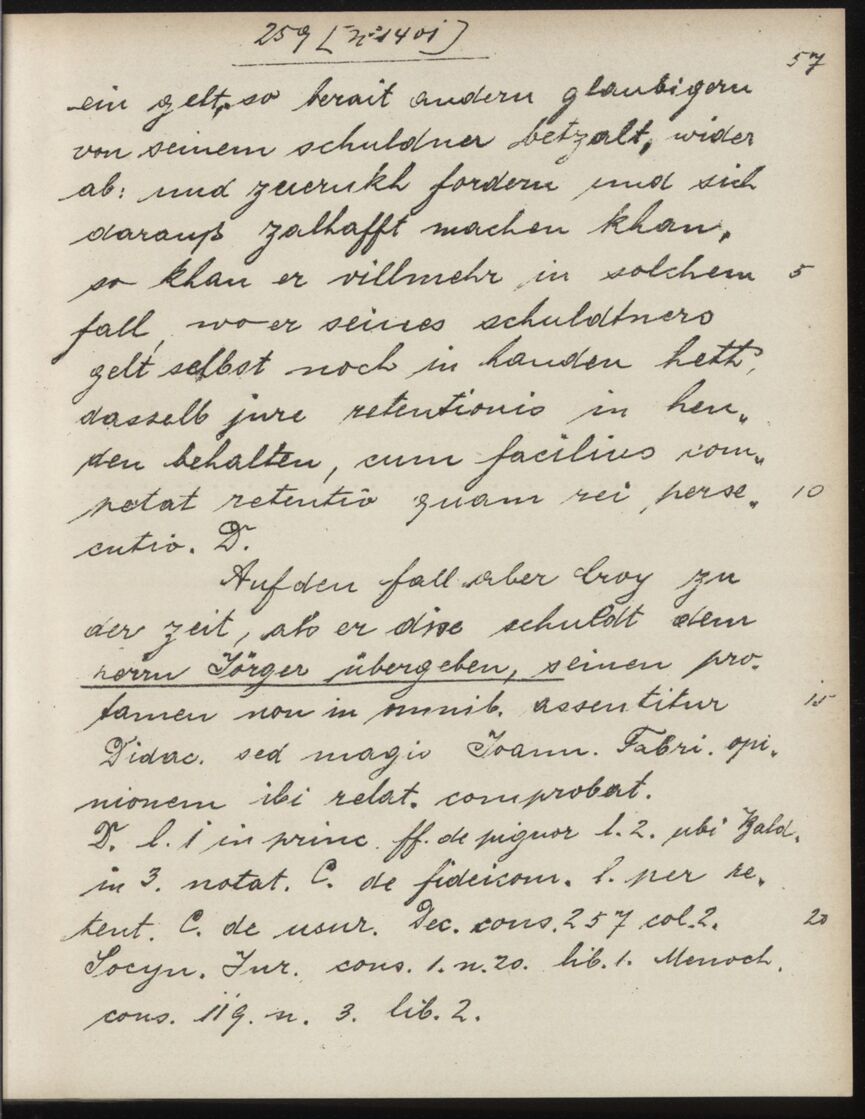 259 [N° 1401]
57
ein gelt, so berait andern glaubigern
von seinem schuldner betzalt, wider
ab: und zuerukh fordern und sich
darauß zalhafft machen khan,
so khan er villmehr in solchem 5
fall, wo er seines schuldtners
gelt selbst noch in handen hett,
dasselb jure retentionis in hen„
den behalten, cum facilius com„
petat retentio quam rei perse„ 10
cutio. D.
Auf den fall aber Croy zu
der zeit, als er dise schuldt dem
herrn Jörger übergeben, seinen pro.
tamen non in omnib. assentitur 15
Didac. sed magis Joann. Fabri. opi„
nionem ibi relat. comprobat.
D. l. 1 in princ ff. de pignor l. 2. ubi Bald.
in 3. notat. C. de fideicom. l. per re„
tent. C. de usur. Dec. cons. 257 col. 2. 20
Socyn. Jur. cons. 1. n. 20. lib. 1. Menoch.
cons. 119. n. 3. lib. 2.